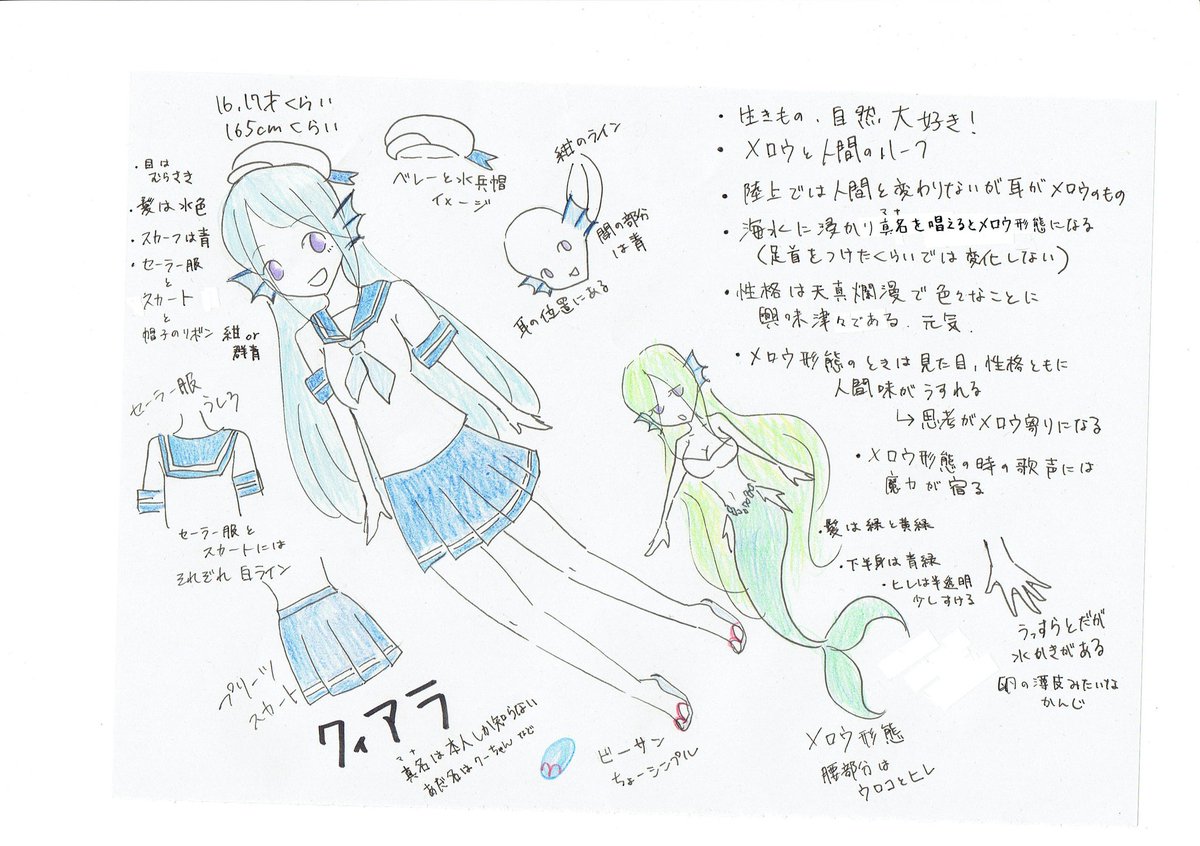 16,17才くらい
165cmくらい
・目は
むらさき
・髪は水色
・スカーフは青
・セーラー服
と
スカート
と
帽子のリボン 紺or
群青
ベレーと水兵帽
イメージ
紺のライン
間の部分
は青
耳の位置にある
セーラー服
うしろ
セーラー服と
スカートには
それぞれ白ライン
プリーツ
スカート
クィアラ
マナ
真名は本人しか知らない
あだ名はクーちゃんなど
ビーサン
ちょーシンプル
・生きもの、自然、大好き!
・メロウと人間のハーフ
・陸上では人間と変わりないが耳がメロウのもの
マナ
・海水に浸かり真名を唱えるとメロウ形態になる
(足首をつけたくらいでは変化しない)
・性格は天真爛漫で色々なことに
興味津々である.元気.
・メロウ形態のときは見た目,性格ともに
人間味がうすれる
↳思考がメロウ寄りになる
・メロウ形態の時の歌声には
魔力が宿る
・髪は緑と黄緑
・下半身は青緑
・ヒレは半透明
少しすける
うっすらとだが
水かきがある
卵の薄皮みたいな
かんじ
メロウ形態
腰部分は
ウロコとヒレ